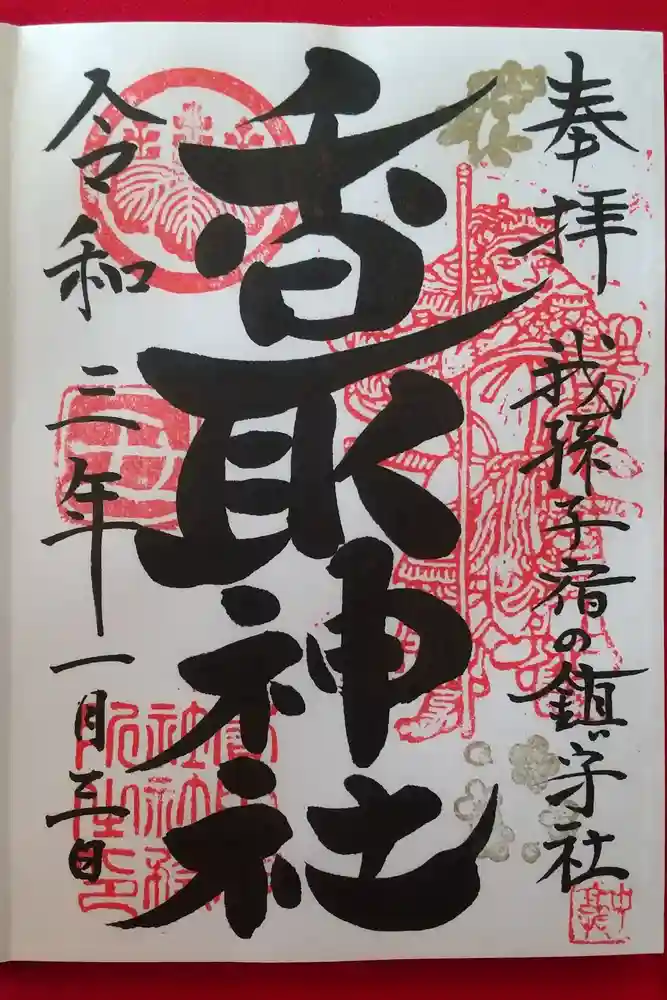 奉拝 我孫子宿の鎮守社
香取神社
令和三年一月三日